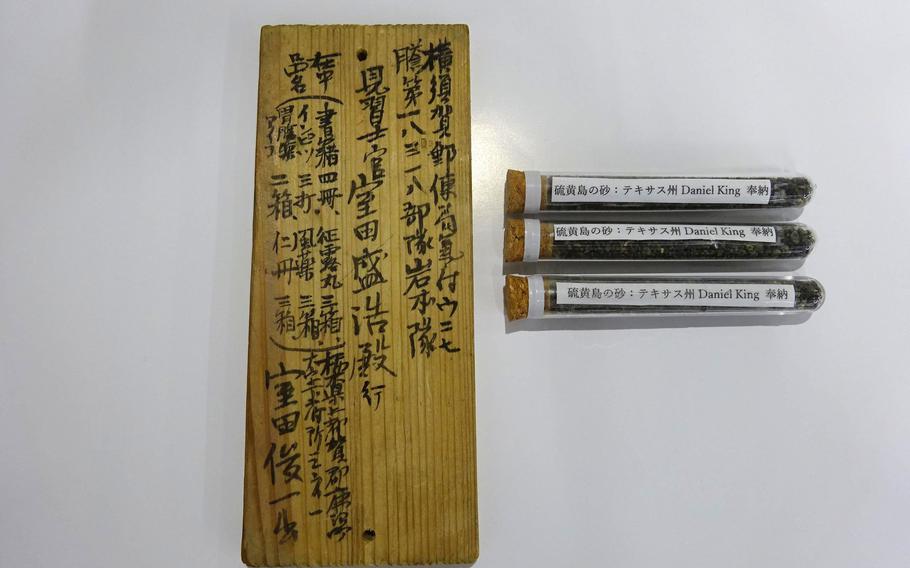 横須賀郵便局気付ウ二七
膽第一八三一八部隊岩本隊
見習士官室田盛浩殿行
在中
品名
書籍四冊、征露丸三箱
三打、風薬三箱
二箱、仁丹三箱
栃木県上都賀郡
室田俊一出
硫黄島の砂：テキサス州 Daniel King 奉納
硫黄島の砂：テキサス州 Daniel King 奉納
硫黄島の砂：テキサス州 Daniel King 奉納